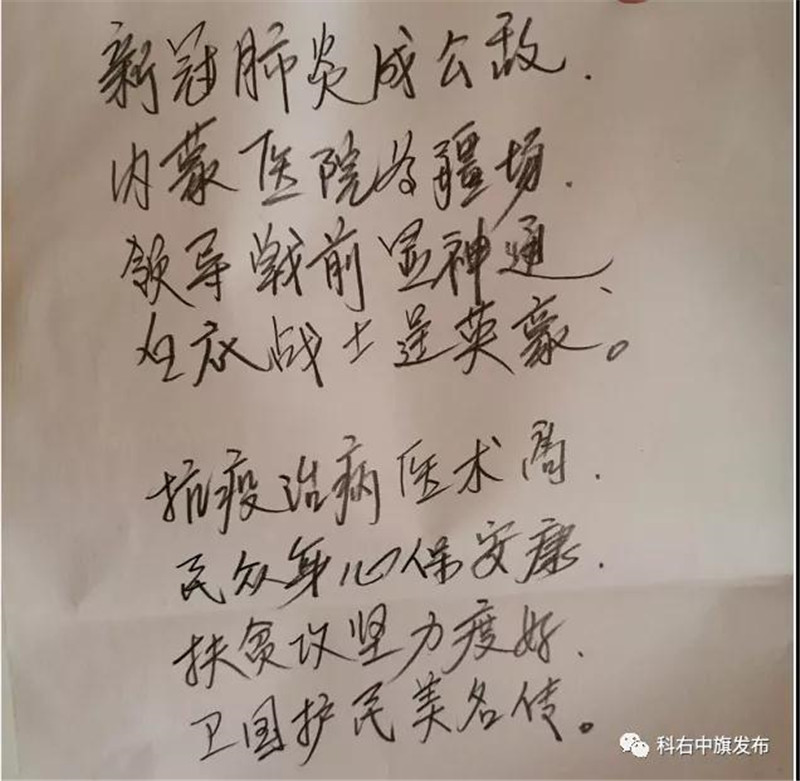 新冠肺炎成公敌.
内蒙医院为疆场.
领导战前显神通、
白衣战士逞英豪。
抗疫治病医术高.
民众身心保安康.
扶贫攻坚力度好.
卫国护民美名传。
科右中旗发布